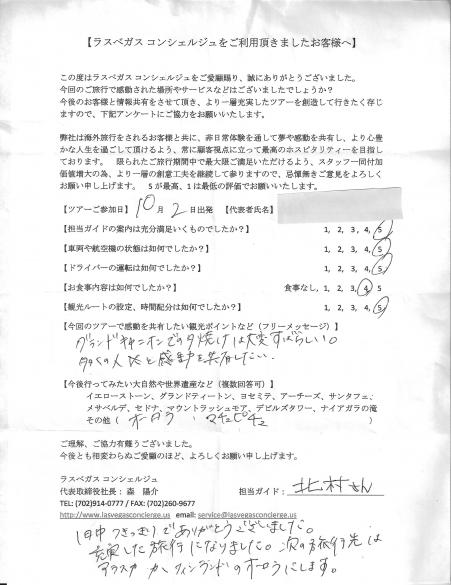 【ラスベガス コンシェルジュをご利用頂きましたお客様へ】
この度はラスベガス コンシェルジュをご愛顧賜り、誠にありがとうございました。
今回のご旅行で感動された場所やサービスなどはございましたでしょうか?
今後のお客様と情報共有をさせて頂き、より一層充実したツアーを創造して行きたく存じ
ますので、下記アンケートにご協力をお願いいたします。
弊社は海外旅行をされるお客様と共に、非日常体験を通して夢や感動を共有し、より心豊
かな人生を過ごして頂けるよう、常に顧客視点に立って最高のホスピタリティーを目指し
ております。 限られたご旅行期間中で最大限ご満足いただけるよう、スタッフ一同付加
価値増大の為、より一層の創意工夫を継続して参りますので、忌憚無きご意見をよろしく
お願い申し上げます。 5が最高、1は最低の評価でお願いいたします。
【ツアーご参加日】 10月 2日出発 【代表者氏名】
【担当ガイドの案内は充分満足いくものでしたか?】 1, 2, 3, 4, 5
【車両や航空機の状態は如何でしたか?】 1, 2, 3, 4, 5
【ドライバーの運転は如何でしたか?】 1, 2, 3, 4, 5
【お食事内容は如何でしたか?】 食事なし, 1, 2, 3, 4, 5
【観光ルートの設定、時間配分は如何でしたか?】 1, 2, 3, 4, 5
【今回のツアーで感動を共有したい観光ポイントなど(フリーメッセージ)】
グランドキャニオンでの夕焼けは大変すばらしい。
多くの人達と感動を共有したい。
【今後行ってみたい大自然や世界遺産など(複数回答可)】
イエローストーン、グランドティートン、ヨセミテ、アーチーズ、サンタフェ、
メサベルデ、セドナ、マウントラッシュモア、デビルズタワー、ナイアガラの滝
その他( オーロラ、マチュピチュ )
ご理解、ご協力有難うございました。
今後とも相変わらぬご愛顧のほど、よろしくお願い申し上げます。
ラスベガス コンシェルジュ
代表取締役社長: 森 陽介 担当ガイド: 北村さん
TEL: (702)914-0777 / FAX: (702)260-9677
http://www.lasvegasconcierge.us email: service@lasvegasconcierge.us
1日中つきっきりでありがとうございました。
充実した旅行になりました。次の旅行先は
アラスカ か フィンランドのオーロラにします。